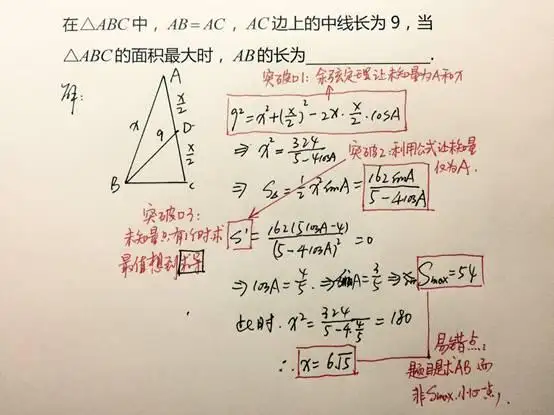 在△ABC中，AB=AC，AC边上的中线长为9，当
△ABC的面积最大时，AB的长为__________.
解:
突破口1: 余弦定理让未知量为A和x
9²=x²+(x/2)²-2x·x/2·cosA
⇒ x²=324/(5-4cosA)
突破2: 利用公式让未知量
仅为A.
⇒ S△=1/2x²sinA=162sinA/(5-4cosA)
突破口3:
未知量只有1个时求
最值想到求导
S'=162(5cosA-4)/(5-4cosA)²=0
⇒cosA=4/5 ⇒sinA=3/5 ⇒ Smax=54
此时. x²=324/(5-4·4/5)=180
∴ x=6√5
易错点:
题目是求AB 而
非Smax, 小心一点,
A
x/2
x
D
9
x/2
B
C